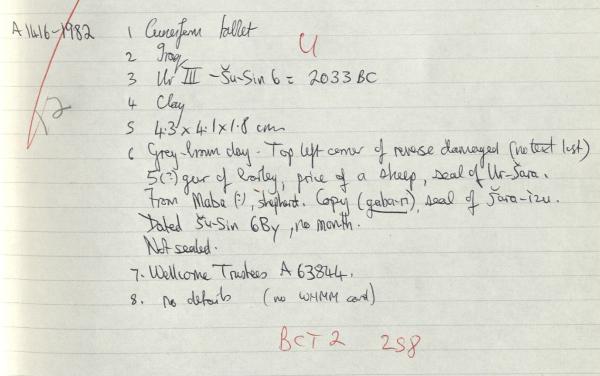 A1416-1982
1 Cuneiform tablet
U
2 Iraq
3 Ur III - Šu-Sin 6 = 2033 BC
4 Clay
5 4.3 x 4.1 x 1.8 cms
6 Grey-brown clay. Top left corner of reverse damaged (no text lost)
5(?) gur of barley, price of a sheep, seal of Ur-Šara.
From Maba (?), shepherd. Copy (gaba-ri), seal of Šara-izu.
Dated Šu-Sin 6By, no month.
Not sealed.
7. Wellcome Trustees A 63844.
8. no details (no WHMM card)
BCT 2 258